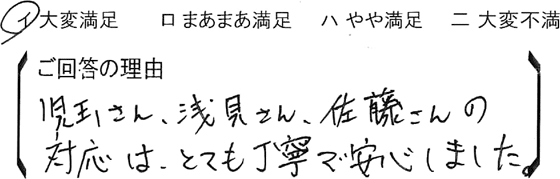 イ 大変満足 ロ まあまあ満足 ハ やや満足 ニ 大変不満
ご回答の理由
児玉さん、浅見さん、佐藤さんの
対応は、とても丁寧で安心しました。